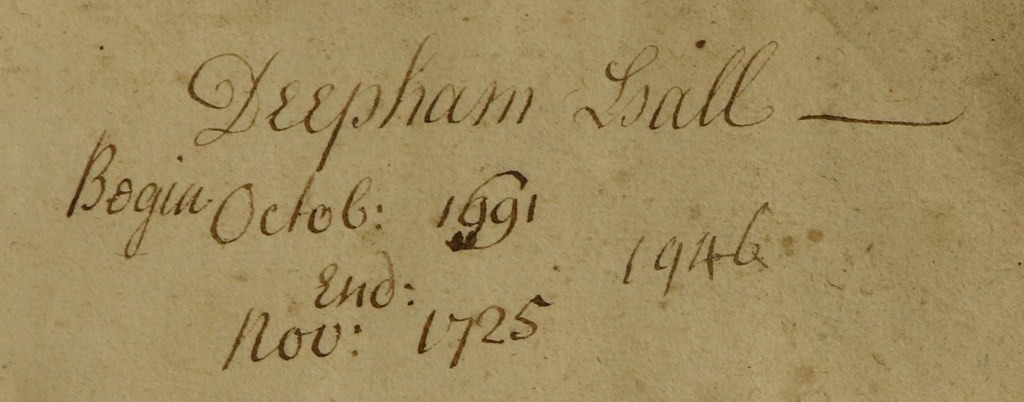 Deepham Hall
Begin Octob: 1991
1946
End:
Nov: 1725